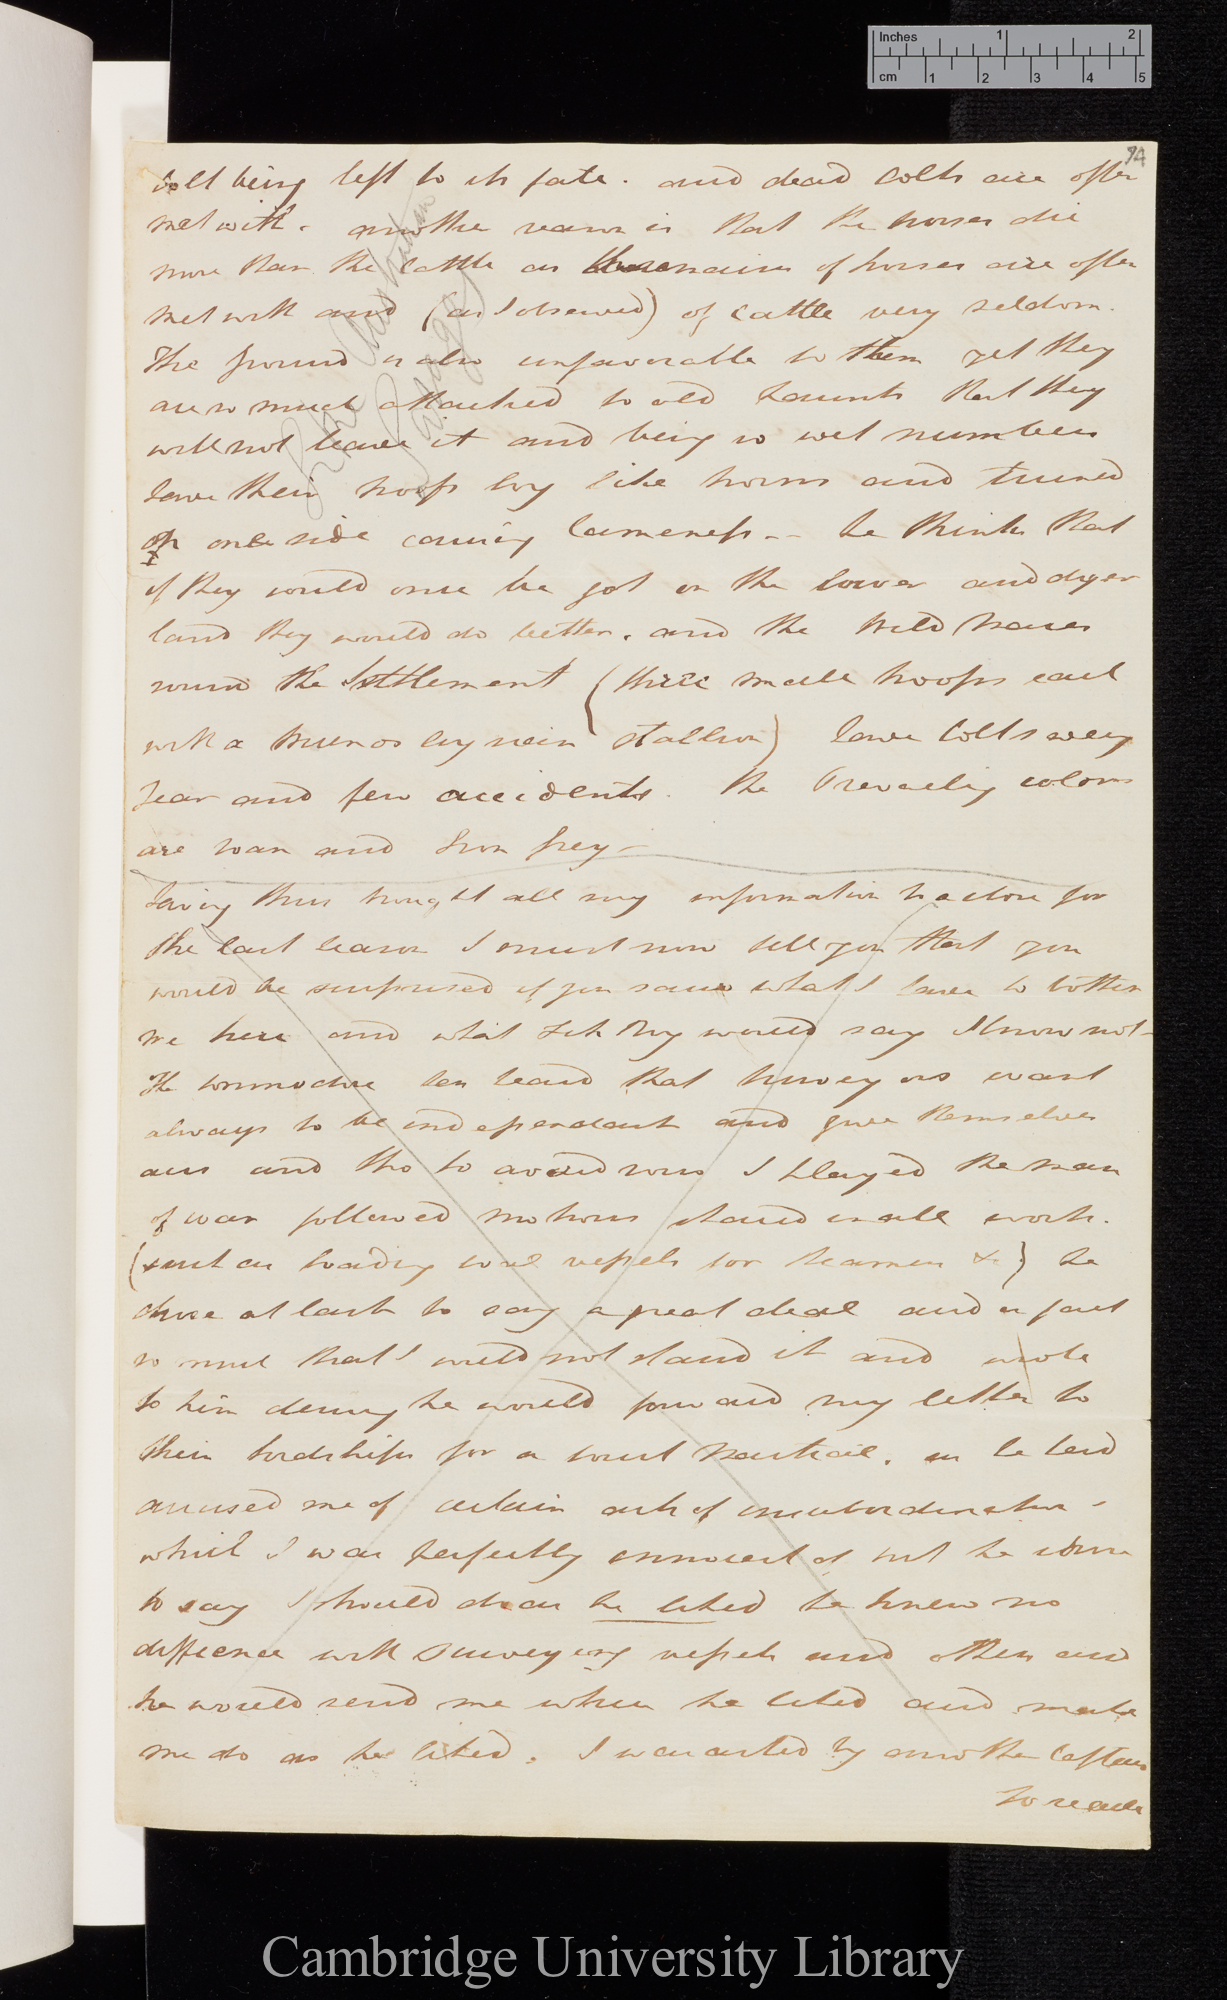 Inches 1 2
cm 1 2 3 4 5
74
Colt being left to its fate. and dead Colts are often
met with. another reason is that the horses die
more than the Cattle as the remains of horses are often
met with and (as I observed) of Cattle very seldom.
The ground is also unfavorable to them yet they
are so much attached to old haunts that they
will not leave it and being so wet numbers
have their hoofs long like horns and turned
up one side causing lameness -- he thinks that
if they could once be got on the lower and dryer
land they would do better. and the Wild Horses
round the Settlement (three small troops each
with a Buenos Ayrean stallion) have Colts every
Year and few accidents. The Prevailing colors
are roan and Iron Grey -
Having thus brought all my information to a close for
the last season I must now tell you that you
would be surprised if you saw what I have to bother
me here and what Fitz Roy would say I know not -
The Commodore has heard that surveyors want
always to be independant and give themselves
airs and tho to avoid rows I played the man
of war followed motions shared in all work.
(such as loading coal vessels for steamers &c) he
chose at last to say a great deal and in fact
so much that I could not stand it and wrote
to him desiring he would forward my letter to
their Lordships for a Court Martial. as he had
accused me of certain acts of insubordination -
which I was perfectly innocent of but he chose
to say I should do as he liked he knew no
difference with Surveying vessels and others and
he would send me where he liked and make
me do as he liked. I was asked by another Captain
to recall
Cambridge University Library